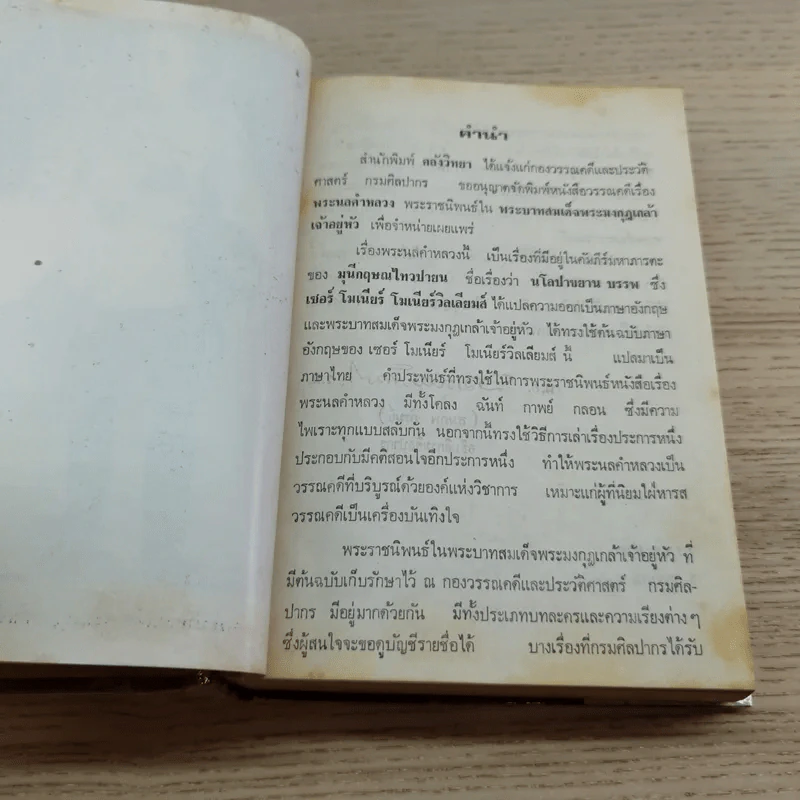 คำนำ
สำนักพิมพ์ คลังวิทยา ได้แจ้งแก่กองวรรณคดีและประวัติ-
ศาสตร์ กรมศิลปากร ขออนุญาตจัดพิมพ์หนังสือวรรณคดีเรื่อง
พระนลคำหลวง พระราชนิพนธ์ใน พระบาทสมเด็จพระมงกุฎเกล้า
เจ้าอยู่หัว เพื่อจำหน่ายเผยแพร่
เรื่องพระนลคำหลวงนี้ เป็นเรื่องที่มีอยู่ในคัมภีร์มหาภารตะ
ของ มุนีกฤษณไทวปายน ชื่อเรื่องว่า นโลปาขยาน บรรพ ซึ่ง
เซอร์ โมเนียร์ โมเนียร์วิลเลียมส์ ได้แปลความออกเป็นภาษาอังกฤษ
และพระบาทสมเด็จพระมงกุฎเกล้าเจ้าอยู่หัว ได้ทรงใช้ต้นฉบับภาษา
อังกฤษของ เซอร์ โมเนียร์ โมเนียร์วิลเลียมส์ นี้ แปลมาเป็น
ภาษาไทย คำประพันธ์ที่ทรงใช้ในการพระราชนิพนธ์หนังสือเรื่อง
พระนลคำหลวง มีทั้งโคลง ฉันท์ กาพย์ กลอน ซึ่งมีความ
ไพเราะทุกแบบสลับกัน นอกจากนี้ทรงใช้วิธีการเล่าเรื่องประการหนึ่ง
ประกอบกับมีคติสอนใจอีกประการหนึ่ง ทำให้พระนลคำหลวงเป็น
วรรณคดีที่บริบูรณ์ด้วยองค์แห่งวิชาการ เหมาะแก่ผู้ที่นิยมใฝ่หารส
วรรณคดีเป็นเครื่องบันเทิงใจ
พระราชนิพนธ์ในพระบาทสมเด็จพระมงกุฎเกล้าเจ้าอยู่หัว ที่
มีต้นฉบับเก็บรักษาไว้ ณ กองวรรณคดีและประวัติศาสตร์ กรมศิล-
ปากร มีอยู่มากด้วยกัน มีทั้งประเภทบทละครและความเรียงต่างๆ
ซึ่งผู้สนใจจะขอดูบัญชีรายชื่อได้ บางเรื่องที่กรมศิลปากรได้รับ